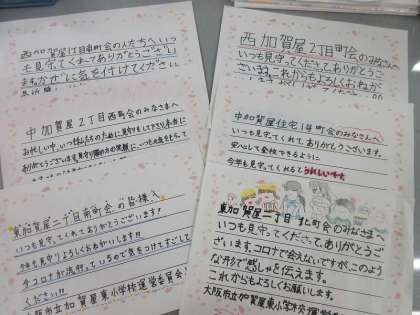 西加賀屋1丁目東町会の人たちへ
いつも見守ってくれてありがとうございます
かぜに気を付けてください
中加賀屋2丁目西町会のみなさまへ
お忙しい中、いつも私たちのために見守りをして下さり本当に
ありがとうございます。
東加賀屋一丁目南町会の皆様へ
いつも見守ってくれてありがとうございます!
今年も見守りよろしくおねがいします!!
今コロナが流行っているので気をつけてすごして
ください!!
大阪市立加賀屋東小学校運営委員会
西加賀屋2丁目町会のみなさんへ
いつも見守ってくださり、ありがとうご
ざいます。これからもよろしくおねがい
中加賀屋住宅1号町会のみなさんへ
いつも見守ってくれて、ありがとうございます。
安心して登校できるように
今年も見守ってくれるとうれしいです
東加賀屋一丁目北町会のみなさまへ
いつも見守ってくださって、ありがとうご
ざいます。コロナで会えないですが、このよう
なカタチで感しゃを伝えます。
これからもよろしくお願いします。
大阪市立加賀屋東小学校